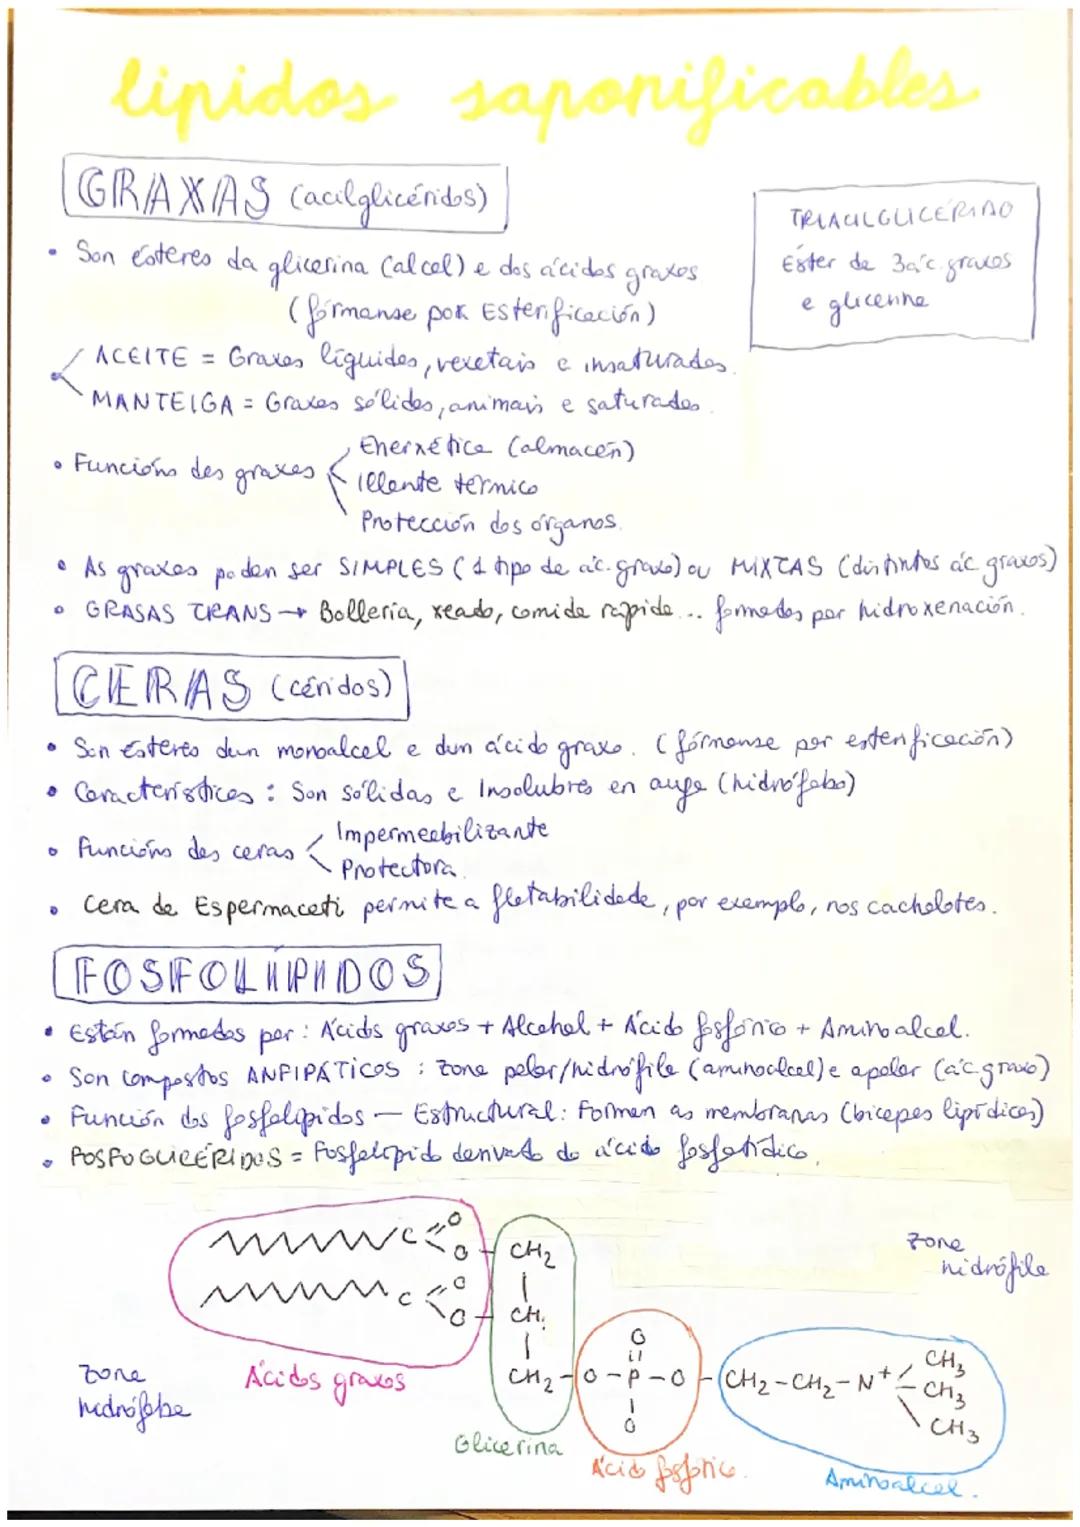 lipidos saponificables
GRAXAS (acilglicéridos)
TRIACILGLICÉRIDO
Éster de 3 ác. graxos
e glicerina
• Son ésteres da glicerina (alcol) e dos ácidos graxos
(fórmanse por Esterificación)
ACEITE = Graxas líquidas, vexetais e insaturadas.
MANTEIGA = Graxas sólidas, animais e saturadas.
• Funcións das graxas
Enerxética (almacén)
Illante térmico
Protección dos órganos.
• As graxas poden ser SIMPLES (1 tipo de ác. graxo) ou MIXTAS (distintos ác. graxos)
• GRASAS TRANS → Bollería, xeado, comida rápida... formadas por hidroxenación.
CERAS (céridos)
• Son Ésteres dun monoalcol e dun ácido graxo. (fórmanse por esterificación)
• Características: Son sólidas e Insolubres en auga (hidrófobo)
• Funcións das ceras
Impermeabilizante
Protectora.
• Cera de Espermaceti permite a flotabilidade, por exemplo, nos cachalotes.
FOSFOLÍPIDOS
• Están formados por: Ácidos graxos + Alcohol + Ácido fosfórico + Aminoalcol.
• Son compostos ANFIPÁTICOS: zona polar/hidrófila (aminoalcol) e apolar (ác. graxo)
• Función dos fosfolípidos — Estructural: Forman as membranas (bicapas lipídicas)
• FOSFOGLICÉRIDOS = Fosfolípido derivado do ácido fosfatídico.
C O
O CH2
C O
O CH
zona
hidrófila
O
CH2-O-P-O-CH2-CH2-N+ CH3
CH3
CH3
O
zona
hidrófoba
Ácidos graxos
Glicerina
Ácido fosfórico.
Aminoalcol.